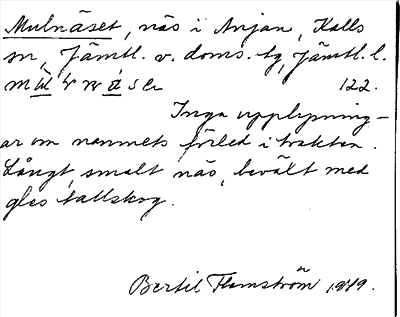 Mulnäset, näs i Anjan, Kalls
sn, Jämtl. v. doms. tg, Jämtl. l.
122.
Inga upplysning-
ar om namnets förled i trakten.
Långt, smalt näs, bevält med
gles tallskog.
Bertil Flemström 1949.